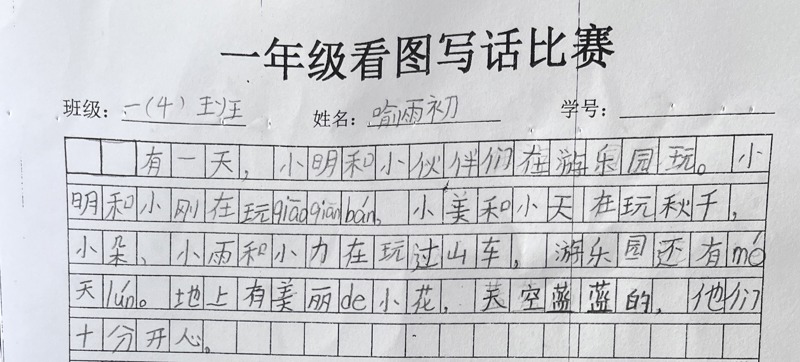 一年级看图写话比赛
班级：一（4）班 姓名：喻雨初 学号：
有一天，小明和小伙伴们在游乐园玩。小
明和小刚在玩qiāoqiānbán，小美和小天在玩秋千，
小朵、小雨和小力在玩过山车，游乐园还有mó
天lún。地上有美丽de小花，天空蓝蓝的，他们
十分开心。